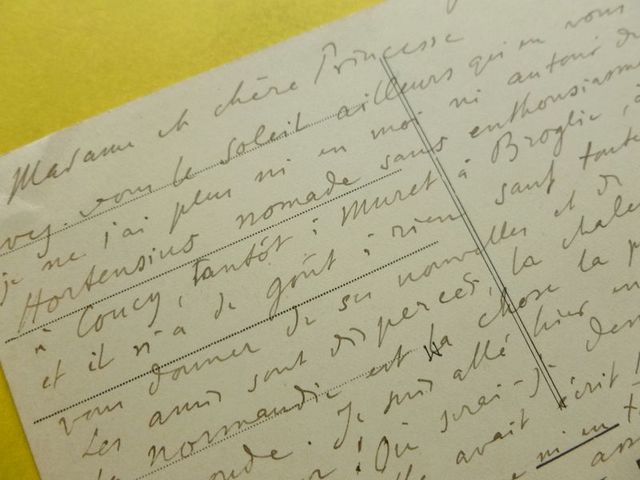 Madame et chère Princesse
vous le soleil ailleurs qu'en vous
je ne j'ai plus ni en moi ni autour de
Hortensius nomade sans enthousiasme
à Coucy, tantôt à Muret à Broglie, à
et il n'a de goût à rien sauf toute
vous donner de ses nouvelles et de
Les amis sont dispercés, la chale
la normandie est la chose la p
onde. Je suis allé hier en
! Où serai-je dem
elle avait écrit
ni en